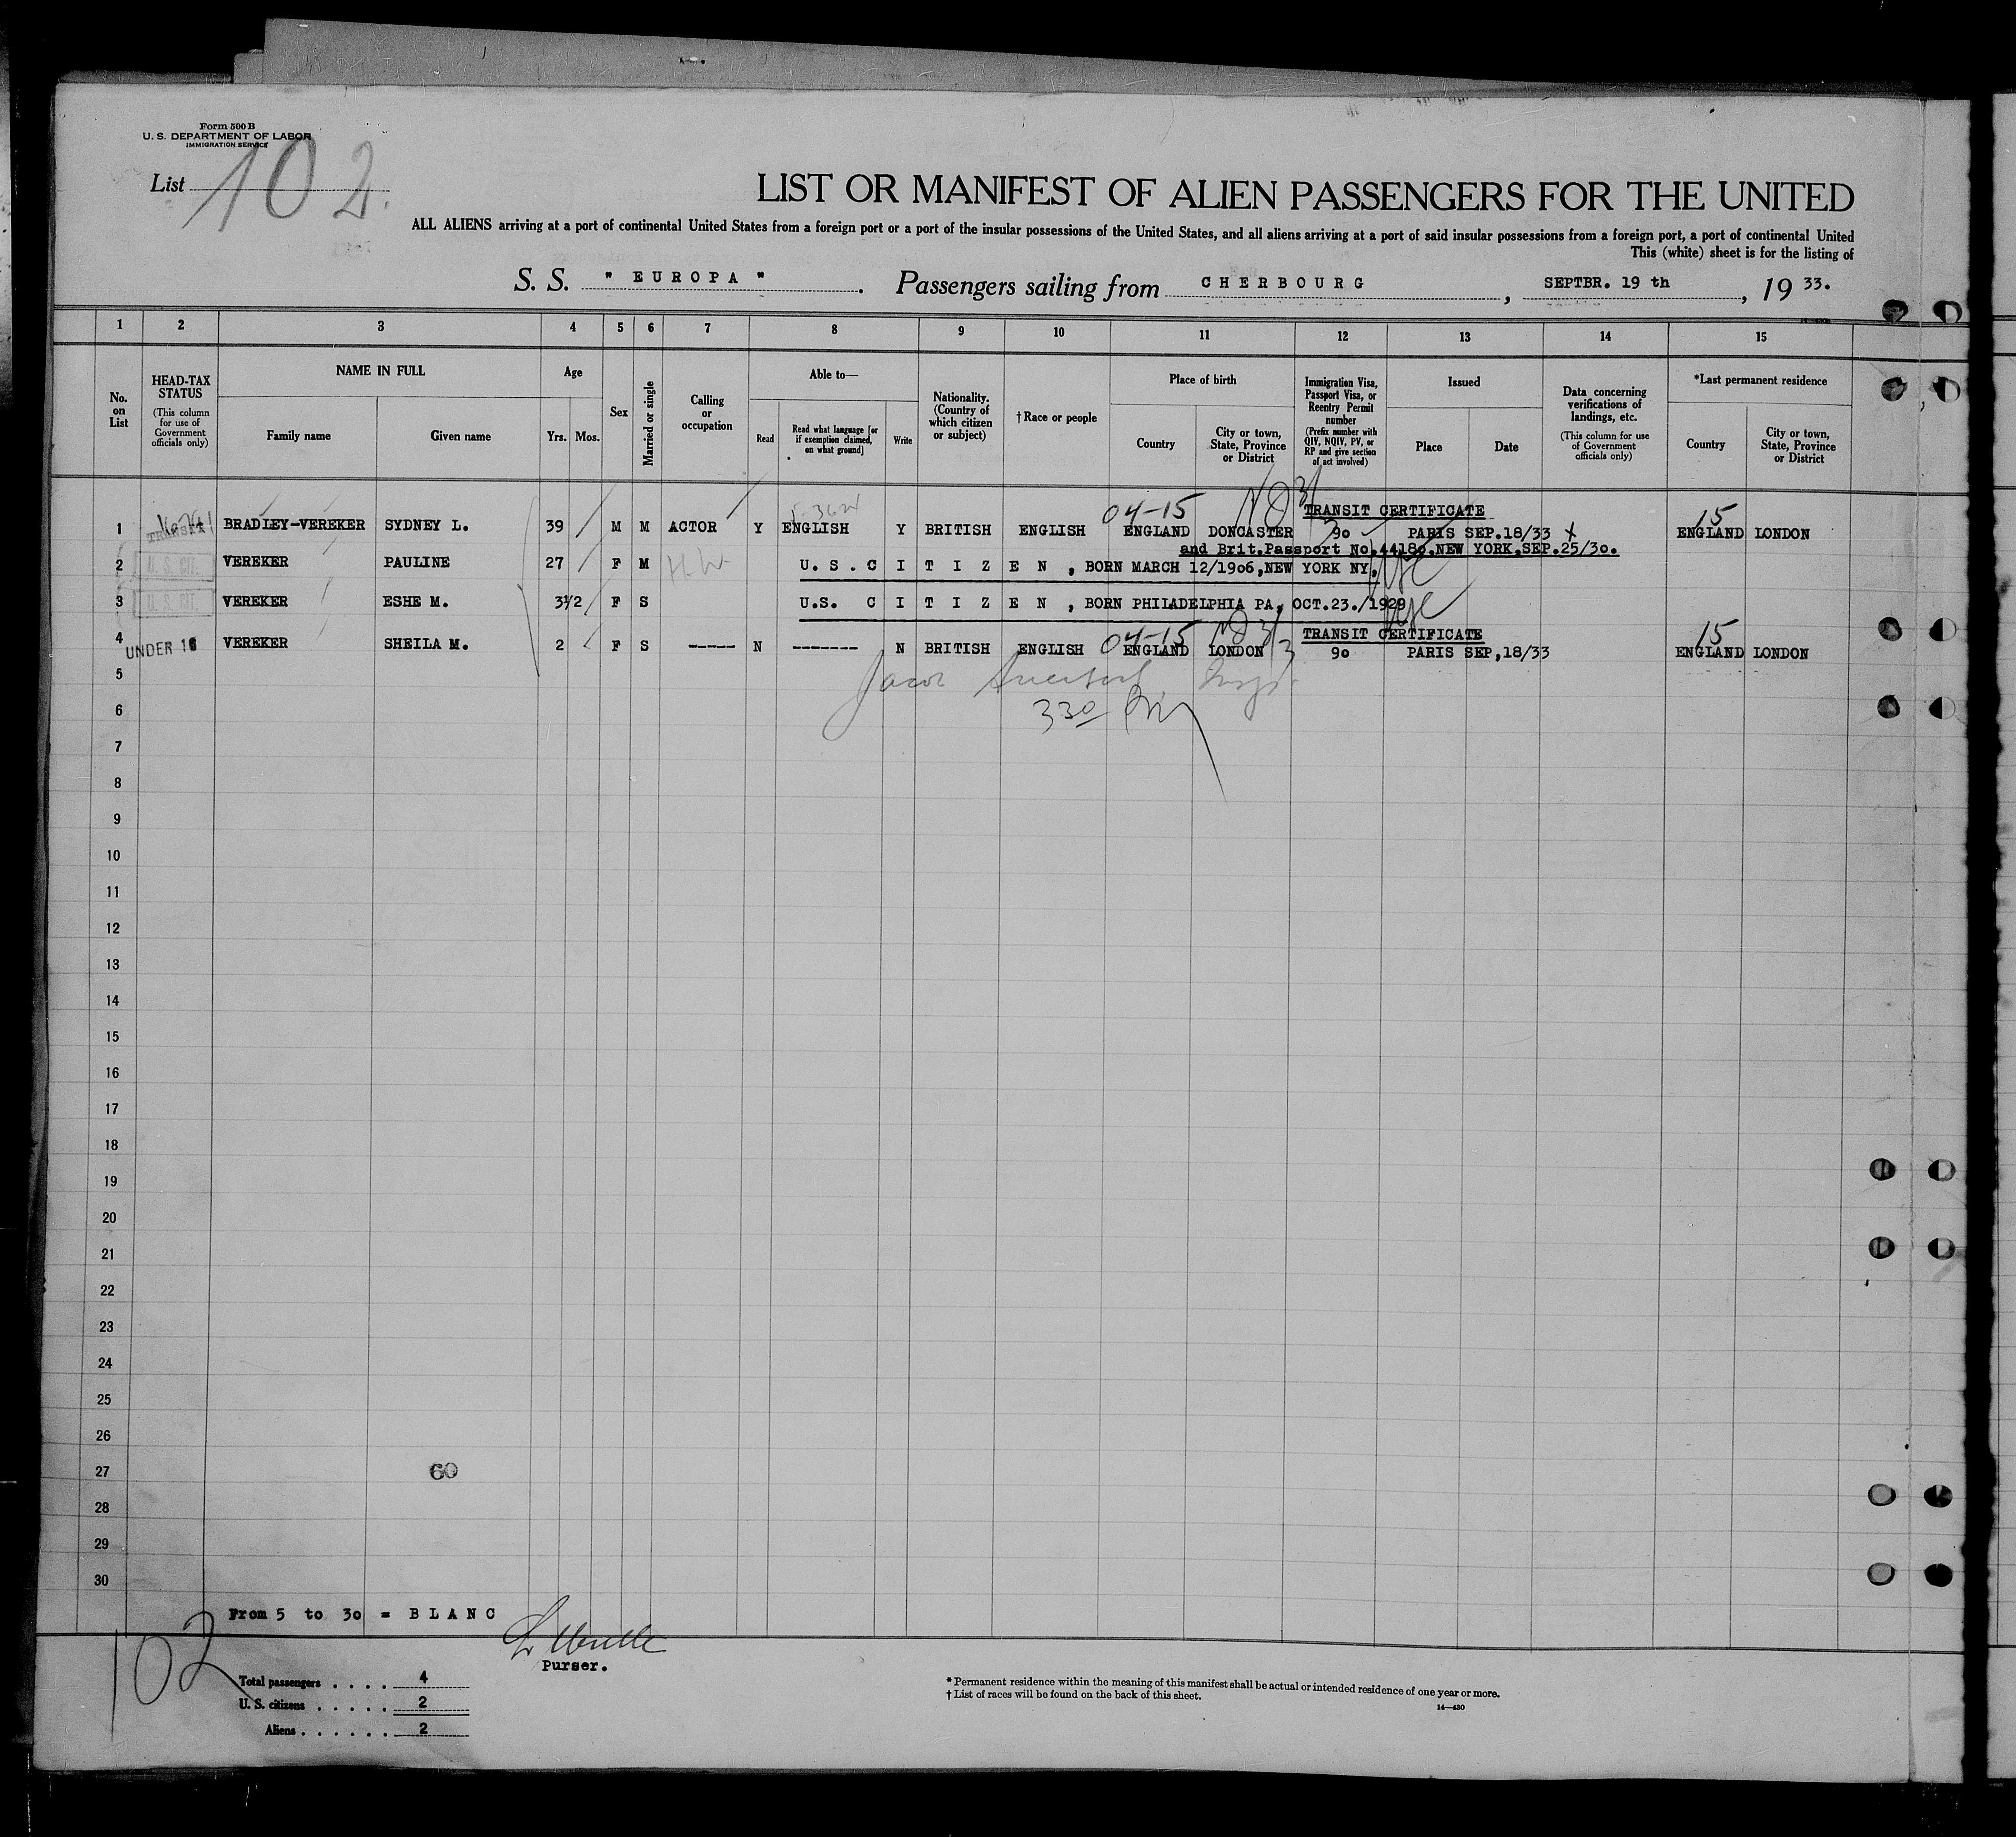 Form 500 B
U. S. DEPARTMENT OF LABOR
IMMIGRATION SERVICE
List 102.
LIST OR MANIFEST OF ALIEN PASSENGERS FOR THE UNITED
ALL ALIENS arriving at a port of continental United States from a foreign port or a port of the insular possessions of the United States, and all aliens arriving at a port of said insular possessions from a foreign port, a port of continental United
This (white) sheet is for the listing of
S. S. " EUROPA ". Passengers sailing from CHERBOURG, SEPTBR. 19 th, 19 33.
1 2 3 4 5 6 7 8 9 10 11 12 13 14 15
No. on List
HEAD-TAX STATUS
(This column for use of Government officials only)
NAME IN FULL
Family name
Given name
Age
Yrs. Mos.
Sex
Married or single
Calling or occupation
Able to—
Read
Read what language [or if exemption claimed, on what ground]
Write
Nationality. (Country of which citizen or subject)
†Race or people
Place of birth
Country
City or town, State, Province or District
Immigration Visa, Passport Visa, or Reentry Permit number
(Prefix number with QIV, NQIV, PV, or RP and give section of act involved)
Issued
Place
Date
Data concerning verifications of landings, etc.
(This column for use of Government officials only)
*Last permanent residence
Country
City or town, State, Province or District
04-15 TRANSIT CERTIFICATE 15
1 BRADLEY-VEREKER SYDNEY L. 39 M M ACTOR Y ENGLISH Y BRITISH ENGLISH ENGLAND DONCASTER 90 PARIS SEP.18/33 ENGLAND LONDON
and Brit.Passport No.44180,NEW YORK,SEP.25/30.
2 U. S. CIT. VEREKER PAULINE 27 F M H.W. U.S.CITIZEN, BORN MARCH 12/1906,NEW YORK NY,
3 U. S. CIT. VEREKER ESHE M. 3½ F S U.S. CITIZEN, BORN PHILADELPHIA PA, OCT.23./1929
04-15 TRANSIT CERTIFICATE 15
4 UNDER 16 VEREKER SHEILA M. 2 F S ----- N ------- N BRITISH ENGLISH ENGLAND LONDON 90 PARIS SEP,18/33 ENGLAND LONDON
5
6 330
7
8
9
10
11
12
13
14
15
16
17
18
19
20
21
22
23
24
25
26
27 60
28
29
30
From 5 to 30 = BLANC
102
Purser.
Total passengers . . . . 4
U. S. citizens . . . . . 2
Aliens . . . . . . 2
* Permanent residence within the meaning of this manifest shall be actual or intended residence of one year or more.
† List of races will be found on the back of this sheet.
14—430